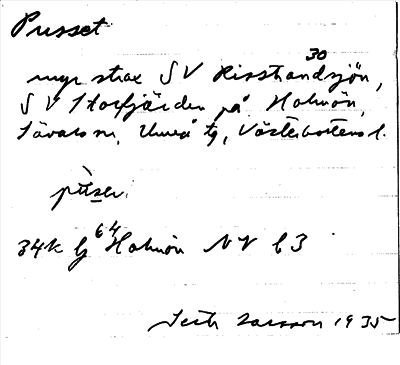 Pusset
myr strax SV Risstrandsjön, 30
SV Storfjärden på Holmön,
Sävars sn, Umeå tg, Västerbottens l.
pùser
34k Gj 64 Holmön NV b3
Larsson 1935